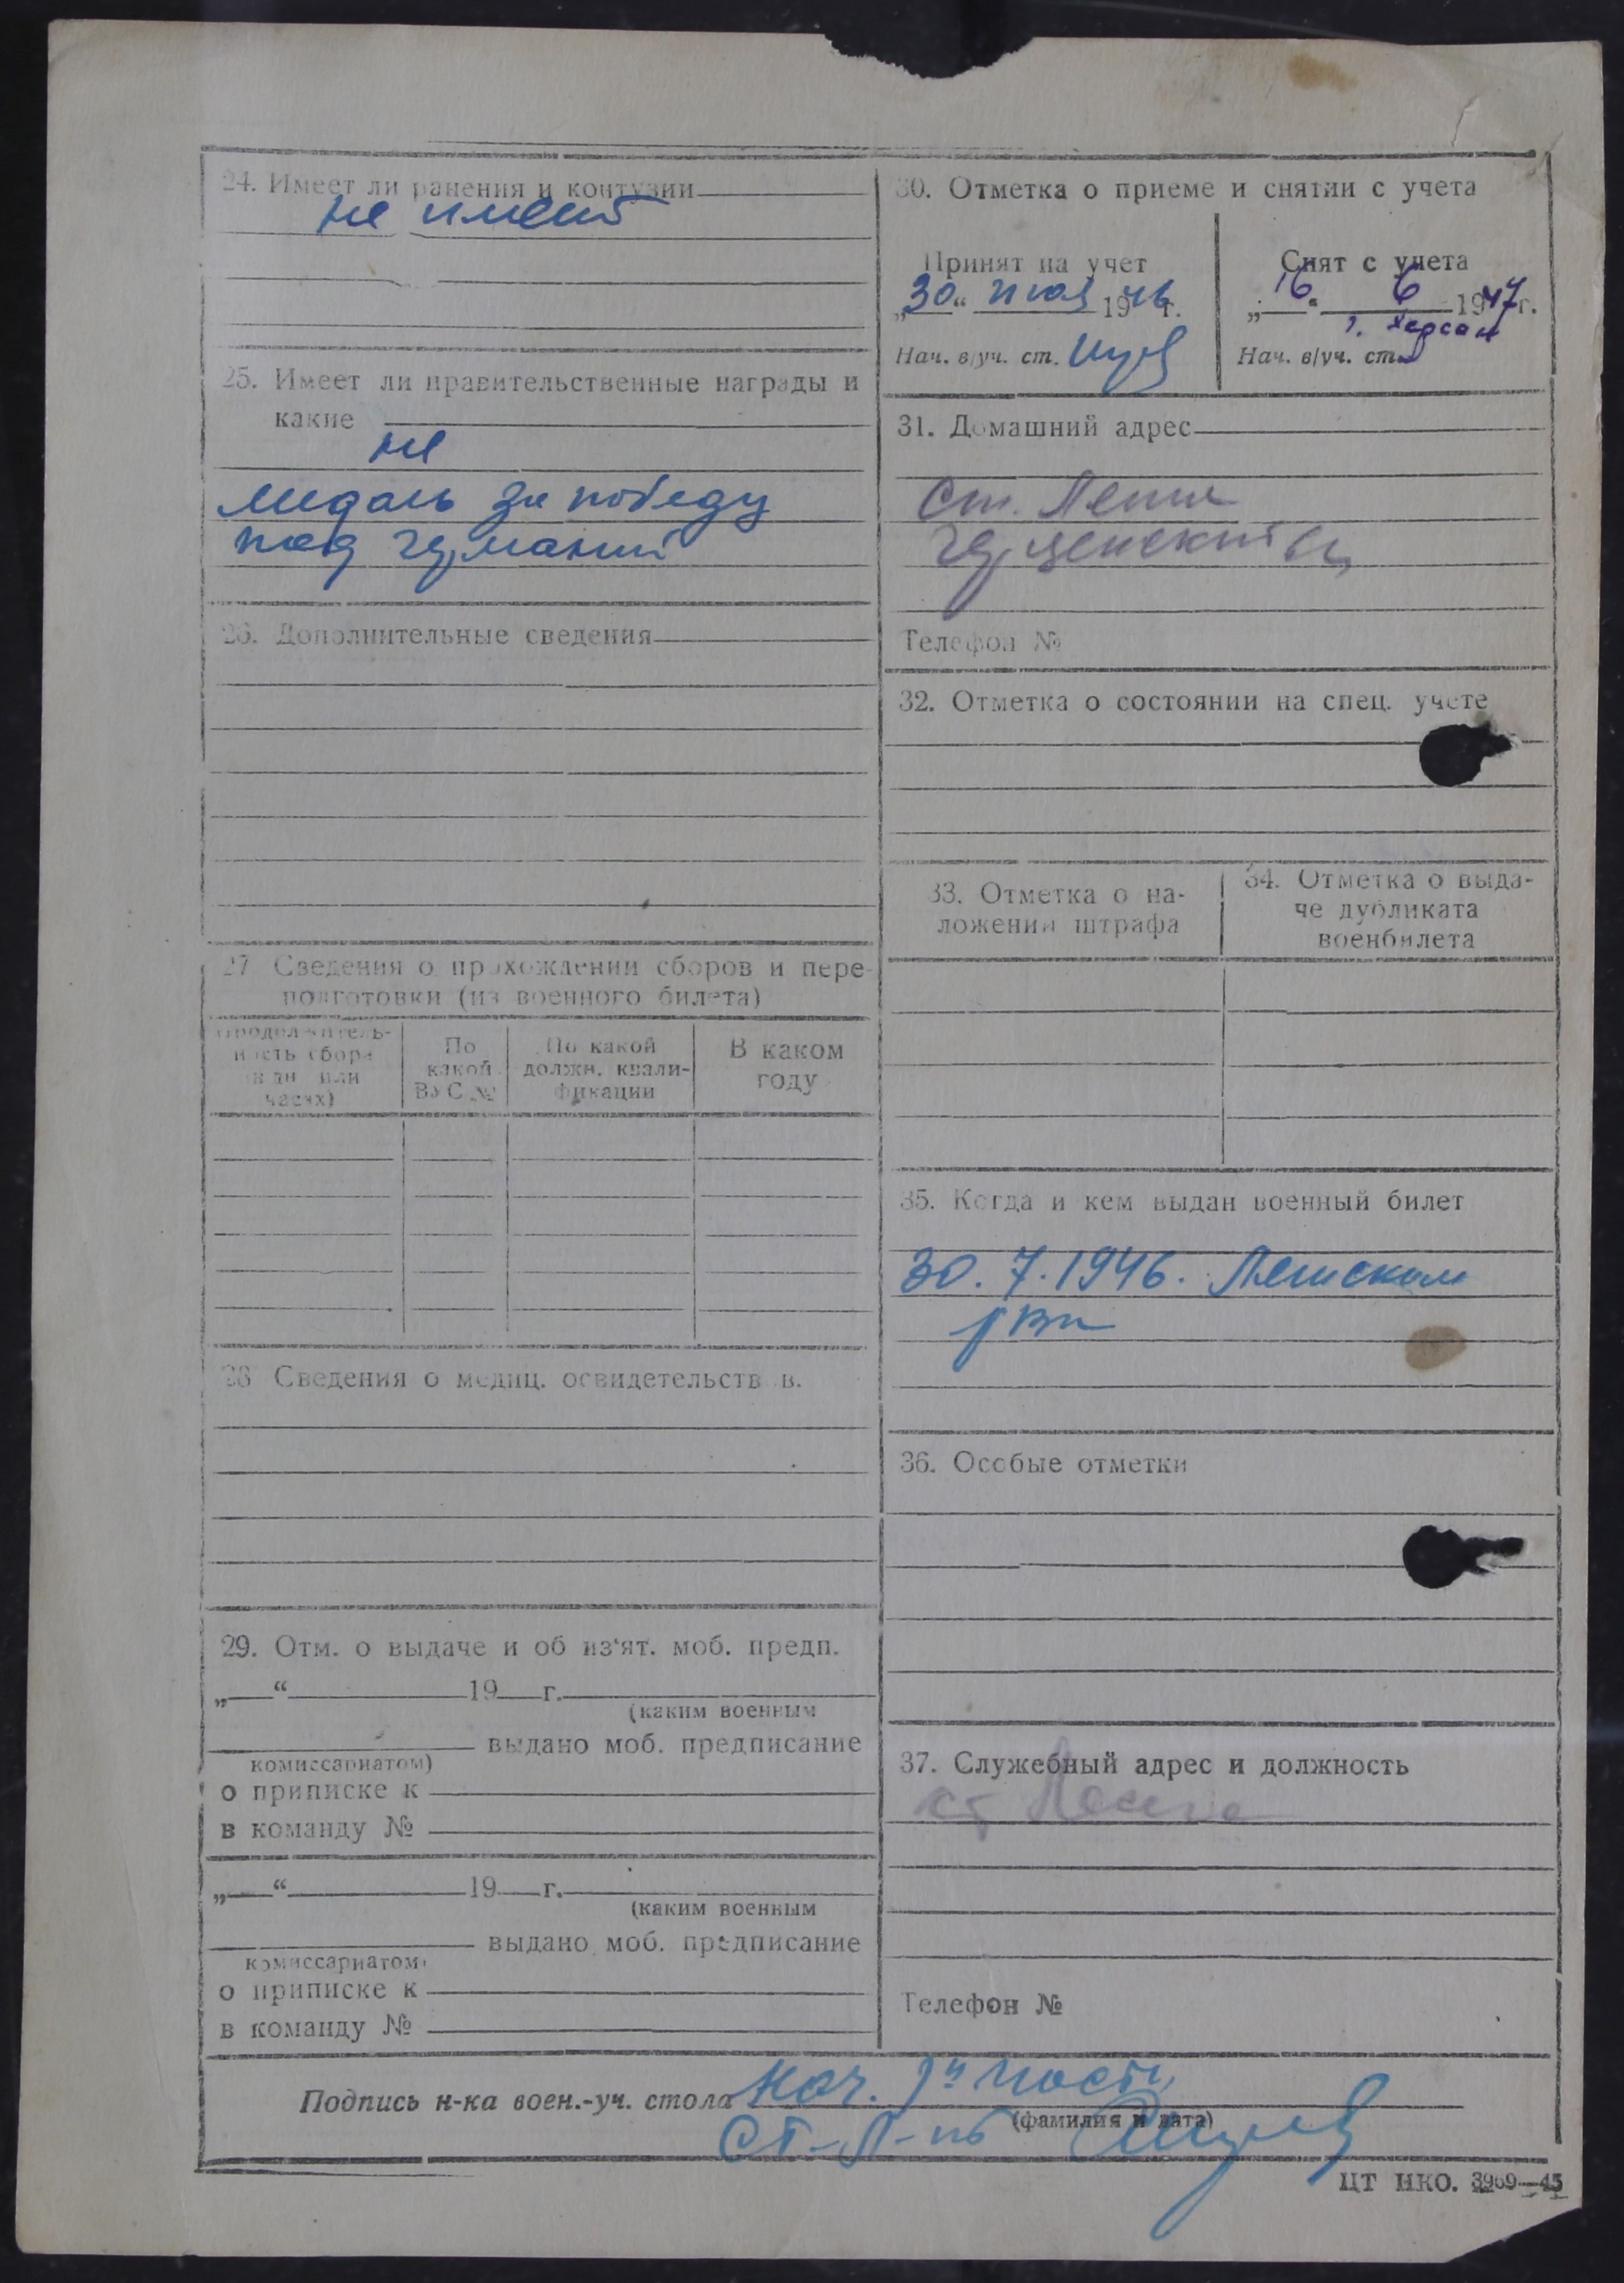 24. Имеет ли ранения и контузии
не имеет
25. Имеет ли правительственные награды и
какие
не
медаль за победу
над германий
26. Дополнительные сведения
27 Сведения о прохождении сборов и пере-
подготовки (из военного билета)
Продолжитель-
ность сбора
в дн или
часах)
По
какой
ВУС №
По какой
должн. квали-
фикации
В каком
году
28 Сведения о медиц. освидетельств в.
29. Отм. о выдаче и об из'ят. моб. предп.
„ “ 19 г.
(каким военным
выдано моб. предписание
комиссариатом)
о приписке к
в команду №
„ “ 19 г.
(каким военным
выдано моб. предписание
комиссариатом)
о приписке к
в команду №
30. Отметка о приеме и снятии с учета
Принят на учет
„30“ июля 1946г.
Нач. в/уч. ст.
Снят с учета
„16“ 6 1947г.
г. Херсон
Нач. в/уч. ст.
31. Домашний адрес
ст.
Телефон №
32. Отметка о состоянии на спец. учете
33. Отметка о на-
ложении штрафа
34. Отметка о выда-
че дубликата
военбилета
35. Когда и кем выдан военный билет
30. 7. 1946.
рвк
36. Особые отметки
37. Служебный адрес и должность
Телефон №
Подпись н-ка воен.-уч. стола Нач. части
(фамилия и дата)
ст. л-нт
ЦТ НКО. 3969—45